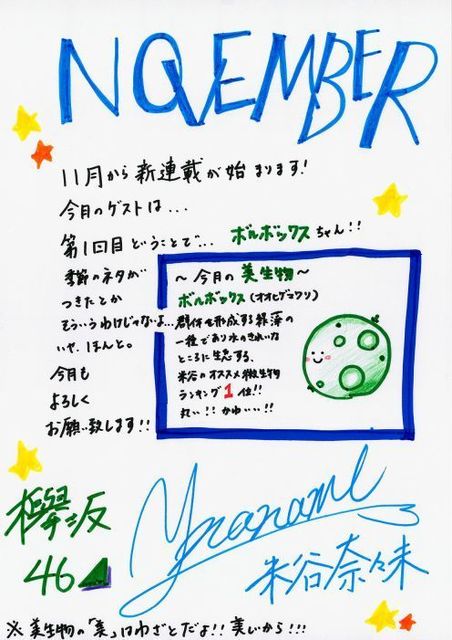 NOVEMBER
11月から新連載が始まります!
今月のゲストは...
第1回目ということで... ボルボックスちゃん!!
季節のネタが
つきたとか
そういうわけじゃないよ...
いや、ほんと。
今月も
よろしく
お願い致します!!
～今月の美生物～
ボルボックス(オオヒゲマワリ)
群体を形成する緑藻の
一種であり水のきれいな
ところに生息する、
米谷のオススメ微生物
ランキング1位!!
丸い!!かわいい!!
欅坂
46
Yonanami
米谷奈々未
※美生物の「美」はわざとだよ!!美しいから!!!